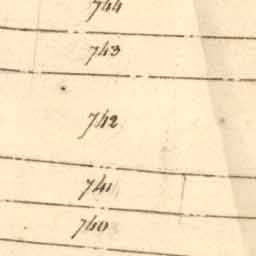 744
743
742
741
740